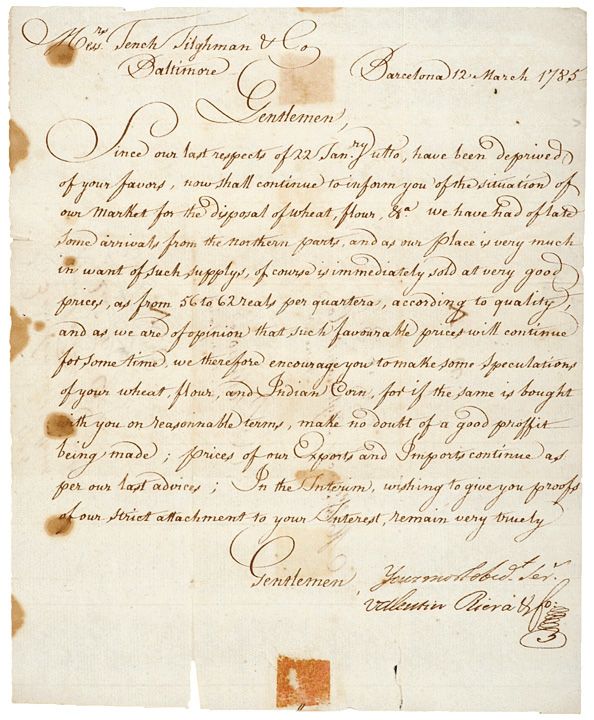 Mess.rs Tench Tilghman & Co
Baltimore
Barcelona 12 March 1785
Gentlemen,
Since our last respects of 22 Jan.ry ulto, have been deprived
of your favors, now shall continue to inform you of the situation of
our Market for the disposal of wheat, flour, &a we have had of late
some arrivals from the northern parts, and as our Place is very much
in want of such supplys, of course is immediately sold at very good
prices, as from 56 to 62 reals per quartera, according to quality;
and as we are of opinion that such favourable prices will continue
for some time, we therefore encourage you to make some speculations
of your wheat, flour, and Indian Corn, for if the same is bought
with you on reasonnable terms, make no doubt of a good proffit
being made; prices of our Exports and Imports continue as
per our last advices; In the Interim, wishing to give you proofs
of our strict attachment to your Interest, remain very truely
Gentlemen, Your most obed.t Ser.
Valentin Riera & Co.